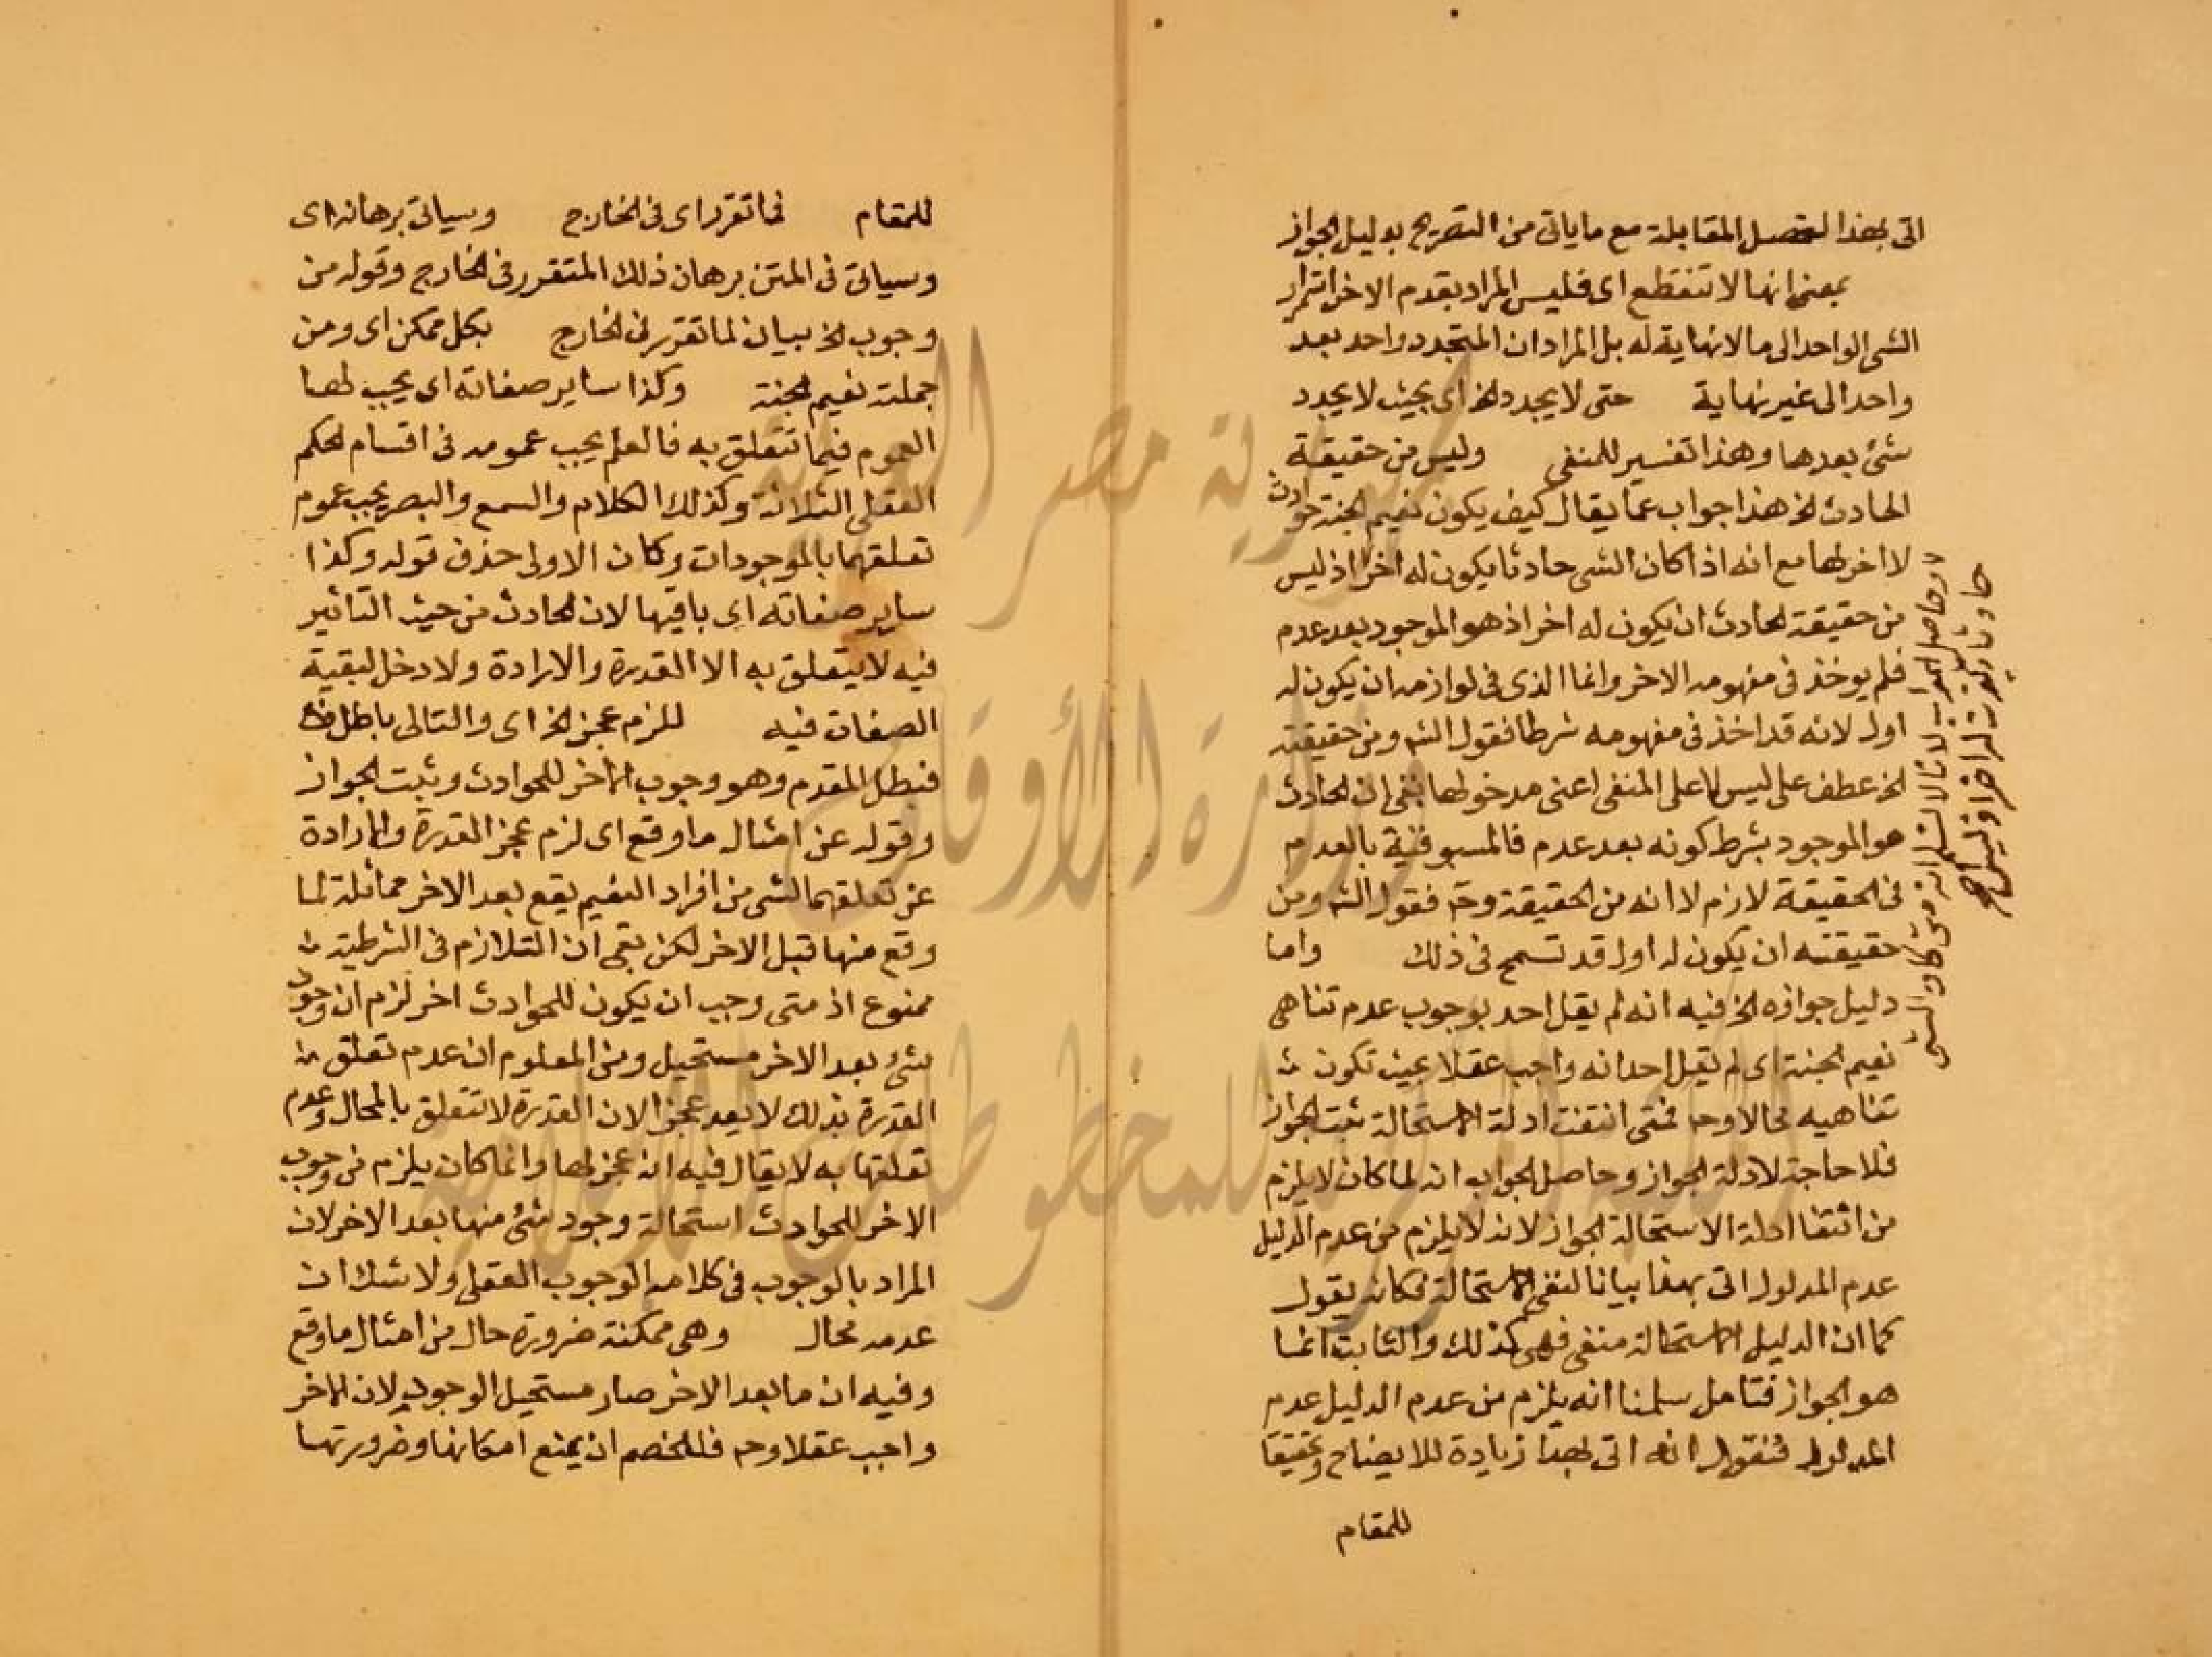 اتى بهذا لتحصل المقابلة مع ما ياتى من التصريح بدليل الجواز
بمعنى انها لا تنقطع اى فليس المراد بعدم الاخر استمرار
الشى الواحد الى ما لا نهاية له بل المراد ان المتجدد واحد بعد
واحد الى غير نهاية حتى لا يجدد الخ اى بحيث لا يجدد
شئ بعدها وهذا تفسير للمنفى وليس من حقيقة
الحادث الخ هذا جواب عما يقال كيف يكون نعيم الجنة حوادث
لا اخر لها مع انه اذا كان الشى حادثا يكون له اخر اذ ليس
من حقيقة الحادث ان يكون له اخر اذ هو الموجود بعد عدم
فلم يوخذ فى مفهومه الاخر وانما الذى فى لوازمه ان يكون له
اول لانه قد اخذ فى مفهومه شرطا فقول الشه ومن حقيقته
الخ عطف على ليس لا على المنفى اعنى مدخولها بقى ان الحادث
هو الموجود بشرط كونه بعد عدم فالمسبوقية بالعدم
فى الحقيقة لازم لا انه من الحقيقة وح فقول الشه ومن
حقيقته ان يكون له اول قد تسمح فى ذلك واما
دليل جوازه الخ فيه انه لم يقل احد بوجوب عدم تناهى
نعيم الجنة اى لم يقل احد انه واجب عقلا بحيث تكون
تناهيه محالا وح فمتى انتفت ادلة الاستحالة ثبت الجواز
فلا حاجة لادلة الجواز وحاصل الجواب انه لما كان لا يلزم
من انتفا ادلة الاستحالة الجواز لانه لا يلزم من عدم الدليل
عدم المدلول اتى بهذا بيانا لنفى الاستحالة فكانه يقول
كما ان الدليل الاستحالة منفى فهى كذلك والثابت انما
هو الجواز فتامل سلمنا انه يلزم من عدم الدليل عدم
المدلول فنقول انه اتى بهذا زيادة للايضاح وتحقيقا
للمقام
وحاصل الجواب لا نسلم انه متى كان الشى
حادثا يكون له اخر اذ ليس الخ
للمقام فما تقرر اى فى الخارج وسياتى برهانه اى
وسياتى فى المتن برهان ذلك المتقرر فى الخارج وقوله من
وجوب الخ بيان لما تقرر فى الخارج بكل ممكن اى ومن
جملته نعيم الجنة وكذا ساير صفاته اى يجب لها
العموم فيما تتعلق به فالعلم يجب عمومه فى اقسام الحكم
العقلى الثلاثة وكذلك الكلام والسمع والبصر يجب عموم
تعلقهما بالموجودات وكان الاولى حذف قوله وكذا
ساير صفاته اى باقيها لان الحادث من حيث التاثير
فيه لا يتعلق به الا القدرة والارادة ولا دخل لبقية
الصفات فيه للزم عجز الخ اى والتالى باطل
فبطل المقدم وهو وجوب الاخر للحوادث وثبت الجواز
وقوله عن امثال ما وقع اى لزم عجز القدرة والارادة
عن تعلقهما لشى من افراد النعيم يقع بعد الاخر مماثلة لما
وقع منها قبل الاخر لكن بقى ان التلازم فى الشرطية
ممنوع اذ متى وجب ان يكون للحوادث اخر لزم ان وجود
شئ بعد الاخر مستحيل ومن المعلوم ان عدم تعلق
القدرة بذلك لا يعد عجزا لان القدرة لا تتعلق بالمحال وعدم
تعلقها به لا يقال فيه انه عجز لها وانما كان يلزم من وجوب
الاخر للحوادث استحالة وجود شئ منها بعد الاخر لان
المراد بالوجوب فى كلامه الوجوب العقلى ولا شك ان
عدمه محال وهى ممكنة ضرورة حال من امثال ما وقع
وفيه ان ما بعد الاخر صار مستحيل الوجوب لان الاخر
واجب عقلا وح فللخصم ان يمنع امكانها وضرورتها
جمهورية مصر العربية
وزارة الأوقاف
المكتبة المركزية للمخطوطات الإسلامية